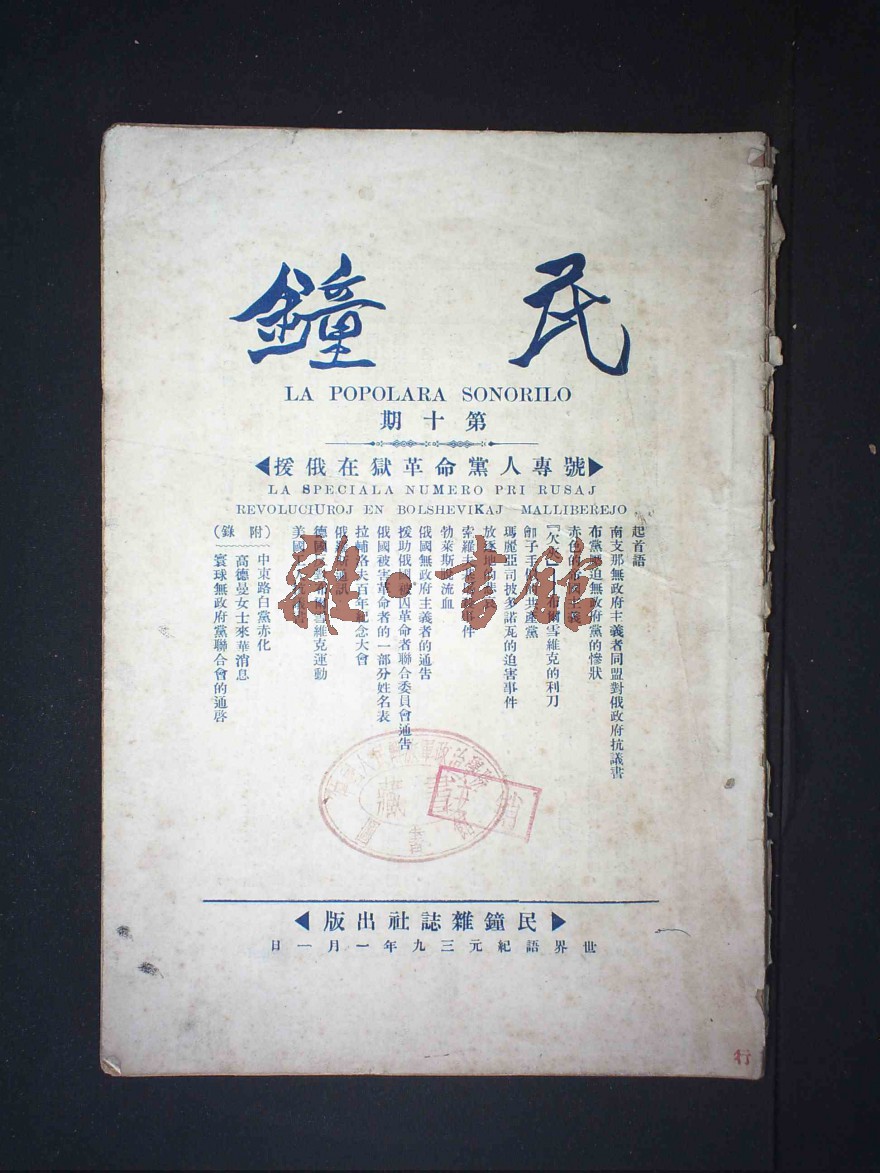 民鐘
LA POPOLARA SONORILO
第十期
援俄在獄革命黨人專號
LA SPECIALA NUMERO PRI RUSAJ
REVOLUCIUROJ EN BOLSHEVIKAJ MALLIBEREJO
起首語
南支那無政府主義者同盟對俄政府抗議書
布黨壓迫無政府黨的慘狀
赤色的
布爾雪維克的利刀
劊子手
共產黨
瑪麗亞司披多諾瓦的迫害事件
放逐地的
索羅
事件
勃萊斯
流血
俄國無政府主義者的通告
援助俄
被囚革命者聯合委員會通告
俄國被害革命者的一部分姓名表
拉輔洛夫百年紀念大會
俄
德
雪維克運動
美國
(附錄)
中東路白黨赤化
高德曼女士來華消息
寰球無政府黨聯合會的通啓
藏書
民鐘雜誌社出版
世界語紀元三九年一月一日
雜·書館
行